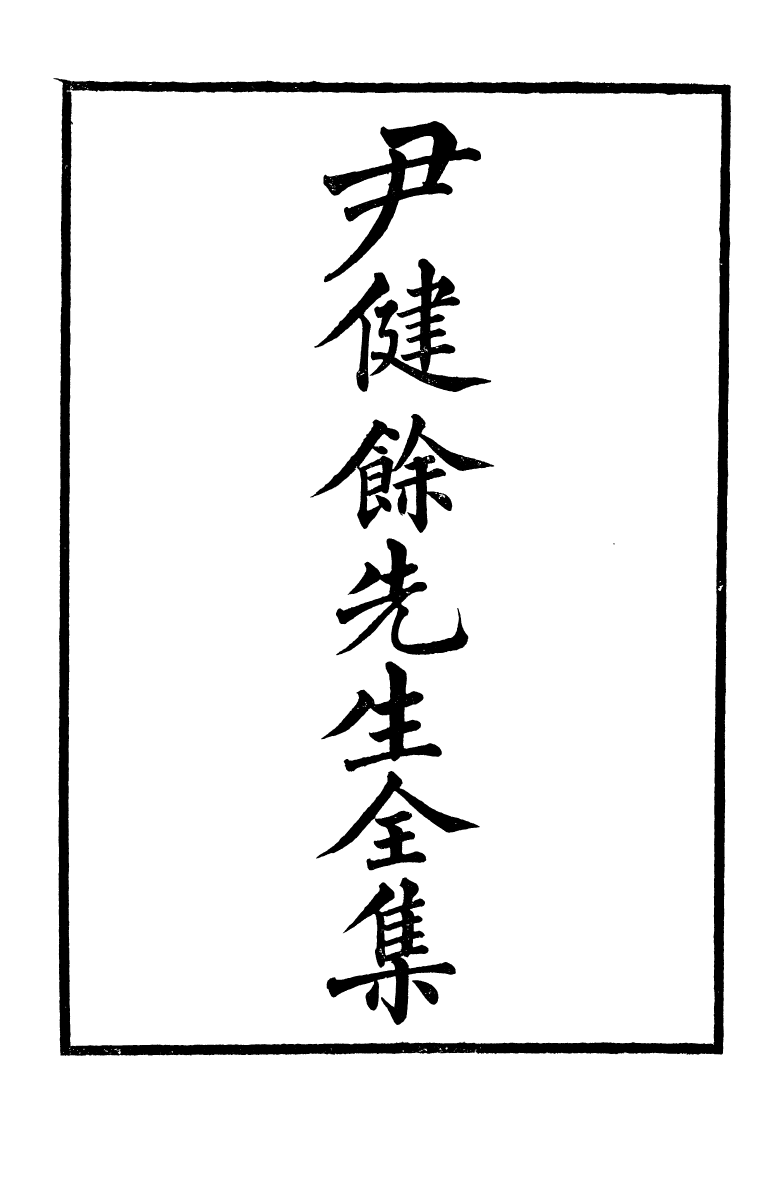 尹健餘先生全集